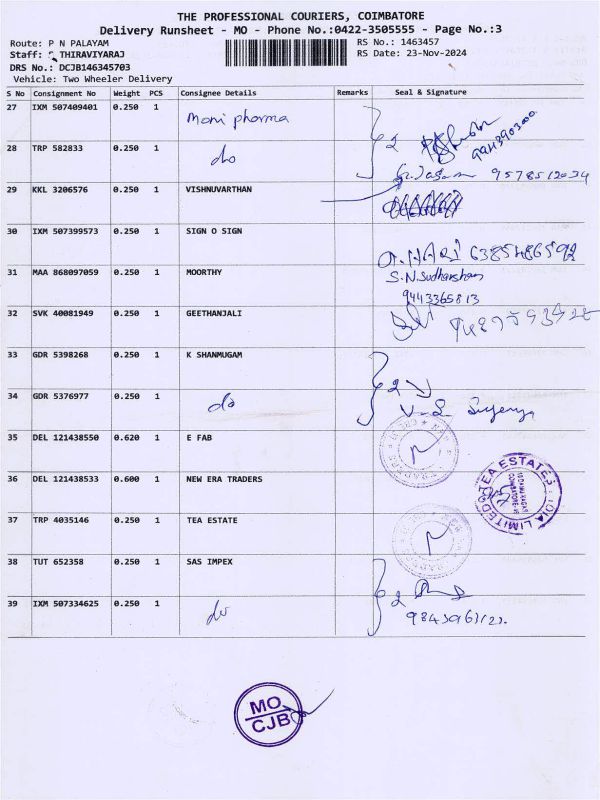 THE PROFESSIONAL COURIERS, COIMBATORE
Delivery Runsheet - MO - Phone No.:0422-3505555 - Page No.:3
Route: P N PALAYAM RS No.: 1463457
Staff: THIRAVIYARAJ RS Date: 23-Nov-2024
DRS No.: DCJB146345703
Vehicle: Two Wheeler Delivery
S No Consignment No Weight PCS Consignee Details Remarks Seal & Signature
27 IXM 507409401 0.250 1 Moni pharma
2
9943903000
28 TRP 582833 0.250 1 do
9578512034
29 KKL 3206576 0.250 1 VISHNUVARTHAN
30 IXM 507399573 0.250 1 SIGN O SIGN
HARI 6385486592
31 MAA 868097059 0.250 1 MOORTHY S.N.Sudharshan
9443365813
32 SVK 40081949 0.250 1 GEETHANJALI
33 GDR 5398268 0.250 1 K SHANMUGAM
2
34 GDR 5376977 0.250 1 do
35 DEL 121438550 0.620 1 E FAB
36 DEL 121438533 0.600 1 NEW ERA TRADERS
TEA ESTATES INDIA LIMITED
37 TRP 4035146 0.250 1 TEA ESTATE
38 TUT 652358 0.250 1 SAS IMPEX
2
39 IXM 507334625 0.250 1 do
MO
CJB